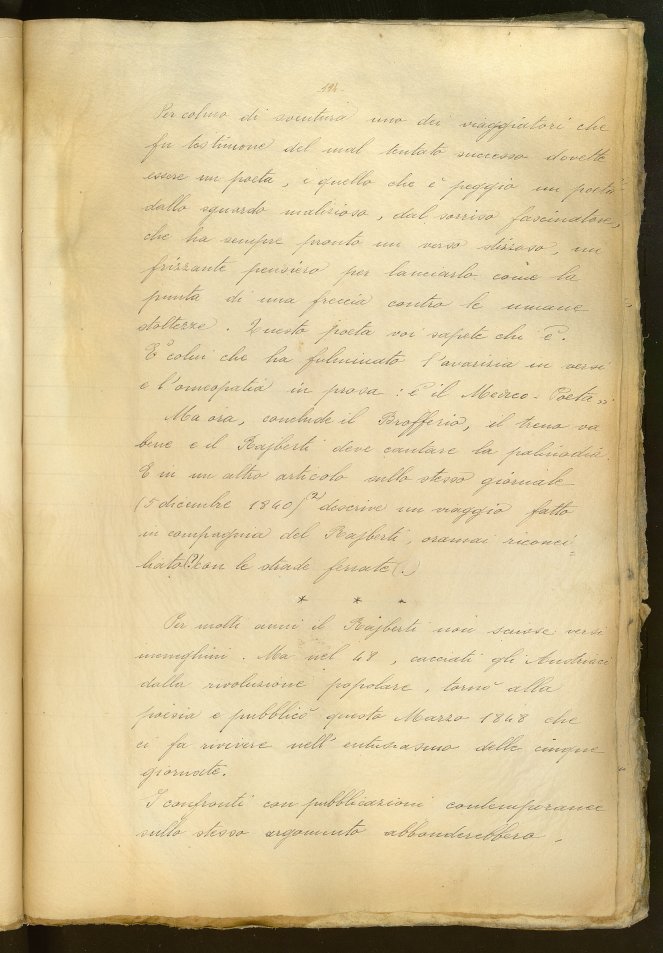 Per colmo di sventura uno dei viaggiatori che
fu testimone del mal tentato successo dovette
essere un poeta, e quello che è peggio un poeta
dallo sguardo malizioso, dal sorriso fascinatore,
che ha sempre pronto un verso stizzoso, un
frizzante pensiero per lanciarlo come la
punta di una freccia contro le umane
stoltezze. Questo poeta voi sapete chi è.
È colui che ha fulminato l'avarizia in versi
e l'omeopatia in prosa: è il Medico-Poeta".
Ma ora, conclude il Brofferio, il treno va
bene e il Rajberti deve cantare la palinodia.
E in un altro articolo sullo stesso giornale
(5 dicembre 1840)(2) descrive un viaggio fatto
in compagnia del Rajberti, oramai riconci=
liato(?) con le strade ferrate(.)
* * *
Per molti anni il Rajberti non scrisse versi
meneghini. Ma nel 48, cacciati gli Austriaci
dalla rivoluzione popolare, tornò alla
poesia e pubblicò questo Marzo 1848 che
ci fa rivivere nell'entusiasmo delle cinque
giornate.
I confronti con pubblicazioni contemporanee
sullo stesso argomento abbonderebbero.